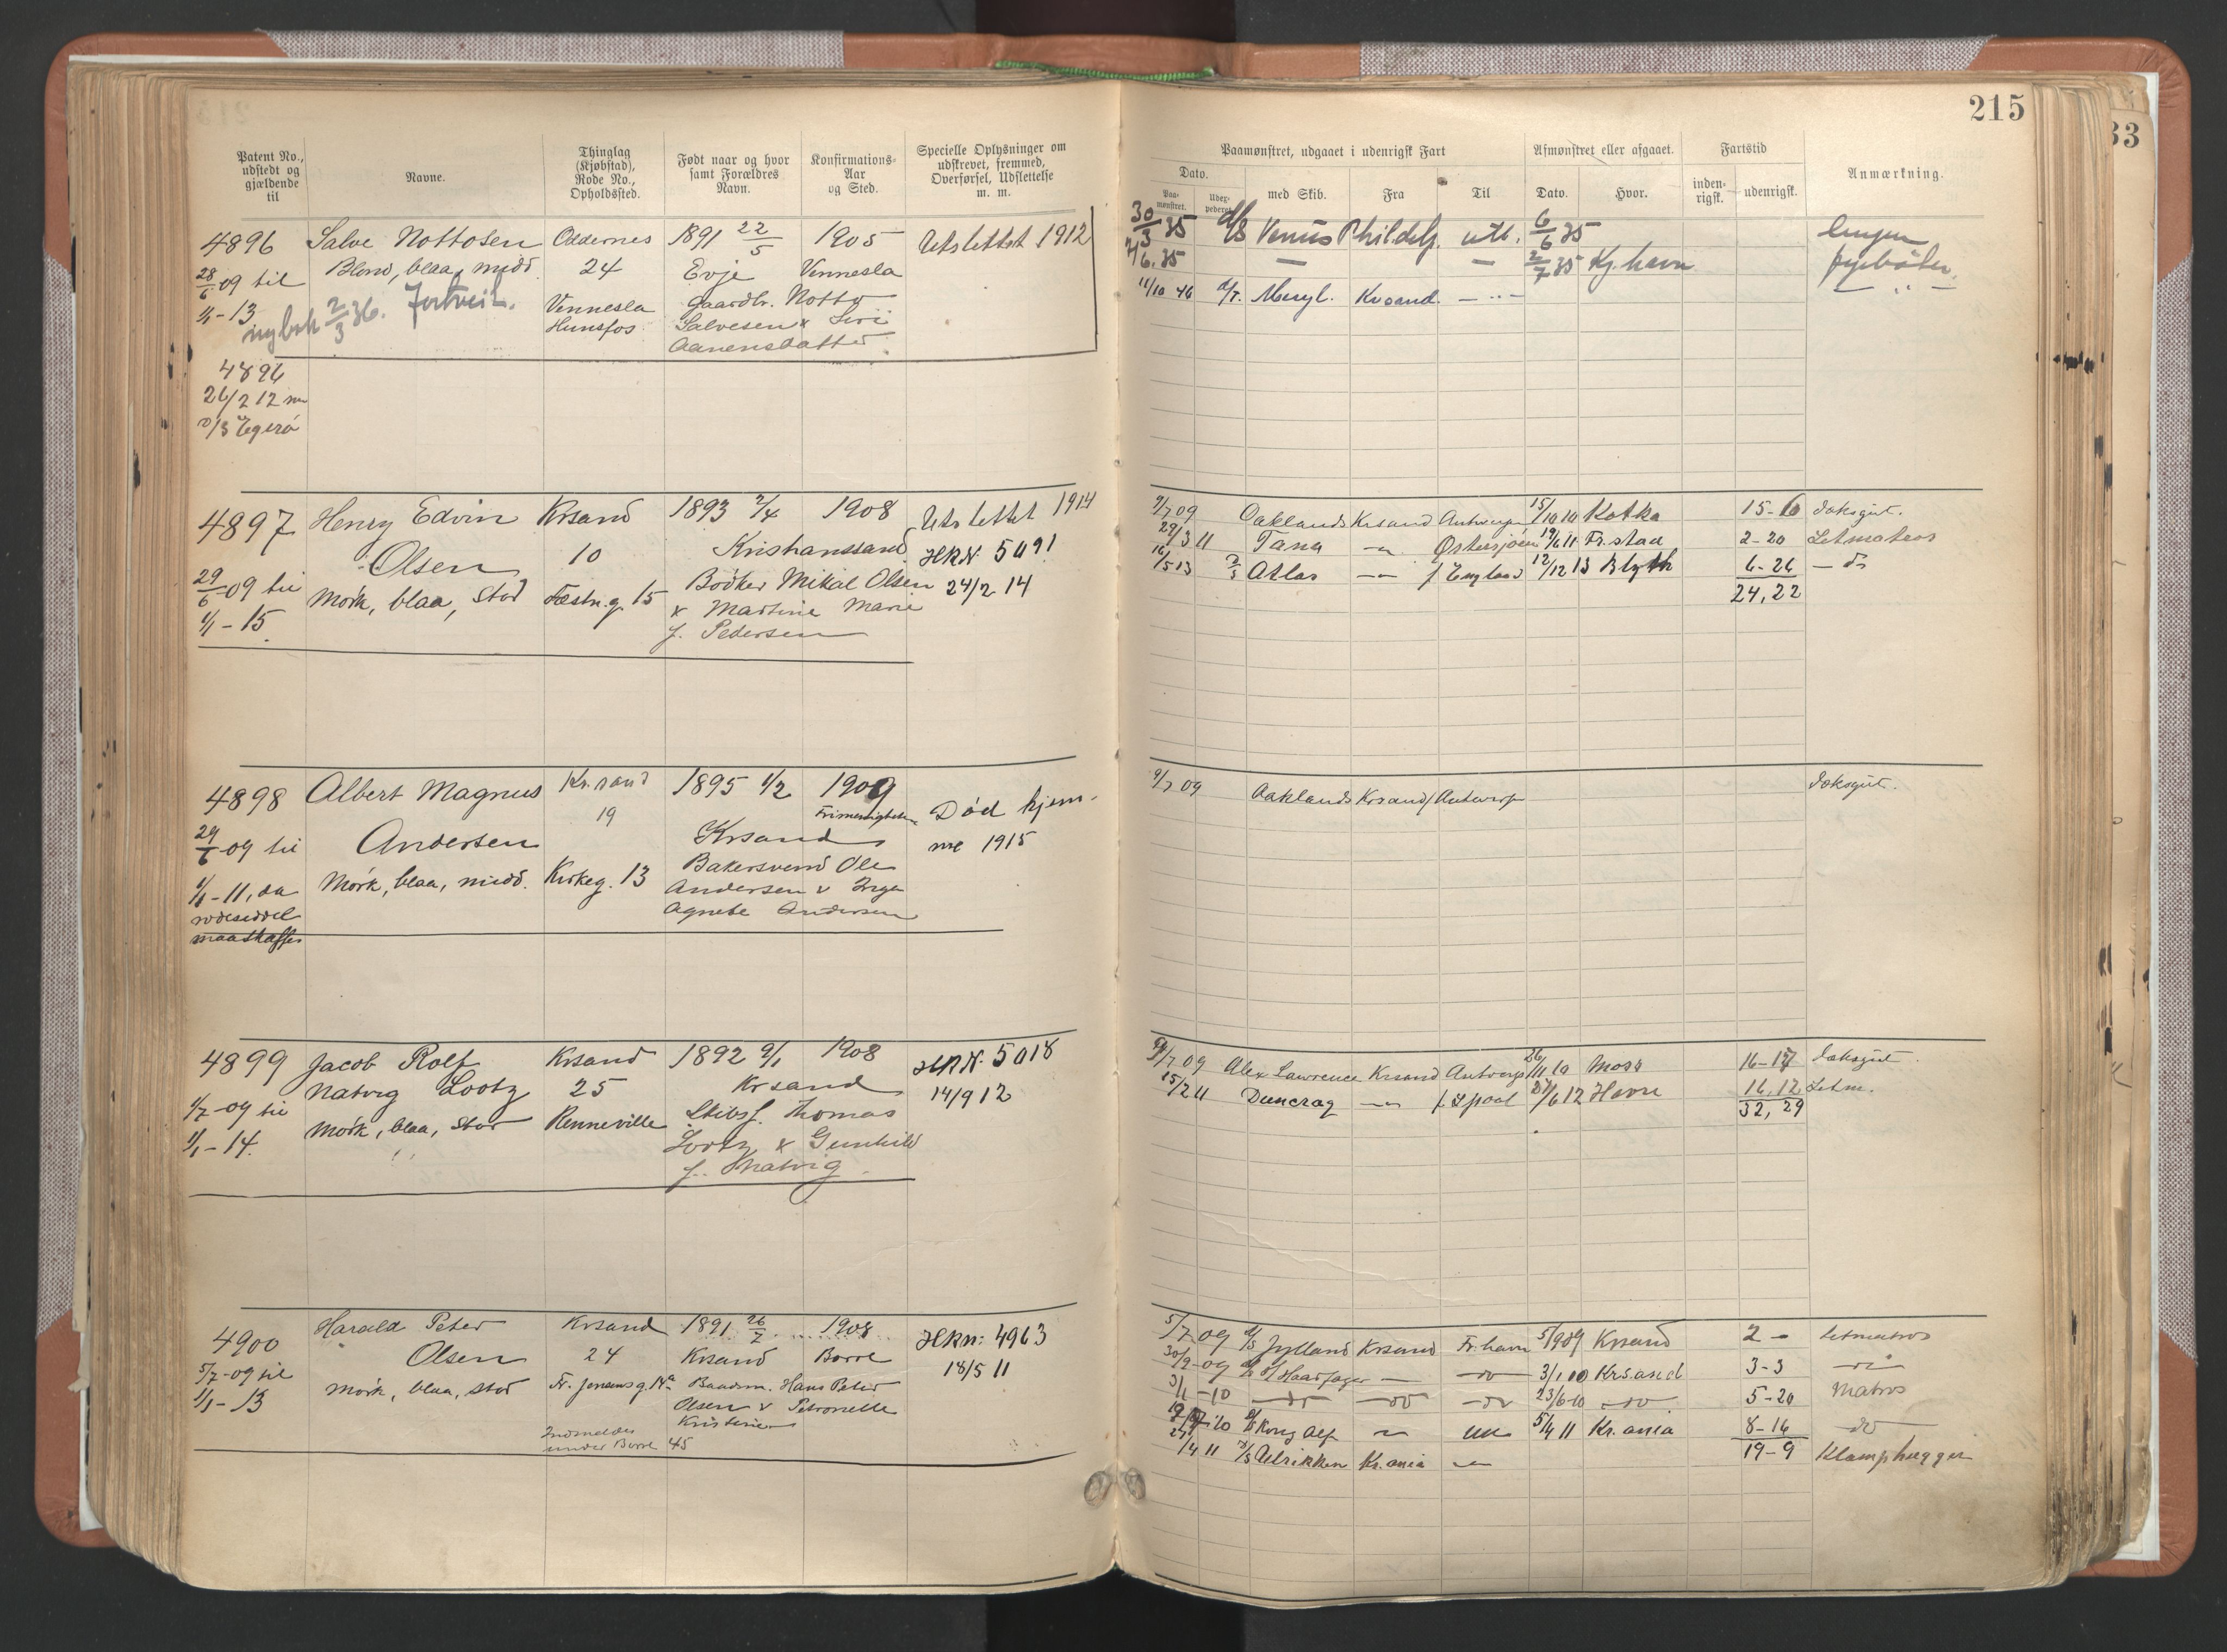 215
33
Patent No., udstedt og gjældende til
Navne.
Thinglag (Kjøbstad), Rode No., Opholdssted.
Født naar og hvor samt Forældres Navn.
Konfirmations-Aar og Sted.
Specielle Oplysninger om udskrevet, fremmed, Overførsel, Udslettelse m. m.
Paamønstret, udgaaet i udenrigsk Fart
Afmønstret eller afgaaet.
Fartstid
Anmærkning.
Dato.
Paa-mønstret.
Uder-pederet
med Skib.
Fra
Til
Dato.
Hvor.
inden-rigsk.
udenrigsk.
4896 Salve Nottosen Oddernes 1891 22/5 1905 Utslettet 1912
28/6 09 til Blond, blaa, midd. 24 Evje Vennesla
1/1 - 13 Vennesla Gaardbr. Notto
Hunsfos Salvesen x Siri
nybsk 2/3 36. Aanensdatter
4896
26/2 12
Egerö
30/3 35 D/S Venus Phildelf. utl. 6/6 35
7/6. 35 — — 2/7 35 Kj.havn fyrböter
11/10 46 M/T. Meryl. Krsand. — " — — " —
4897 Henry Edvin Krsand 1893 2/4 1908 Utslettet 1914
Olsen 10 Kristianssand HRN. 5091
29/6 - 09 til Mørk, blaa, stor Fæstn.g. 15 Bödker Mikal Olsen 24/2 14
1/1 - 15. x Martine Marie
f. Pedersen
9/7 09 Oaklands Krsand Antwerpen 15/10 10 Kotka 15-10 Doksgut.
29/3 11 Tana — " — Østersjøen 19/6 11 Fr.stad 2-20 Letmatros
16/5 13 D/S Atlas — " — f England 12/12 13 Blyth 6-26 — do
24,22
4898 Albert Magnus Kr.sand 1895 1/2 1909 Død hjem-
Andersen 19 Frimenigheten me 1915
29/6 - 09 til Krsand
1/1 - 11, da Mørk, blaa, midd. Kirkeg. 13 Bakersvend Ole
rodeseddel Andersen x Inga
maa skaffes Agnete Andersen
9/7 09 Oaklands Krsand f Antwerp Doksgut.
4899 Jacob Rolf Krsand 1892 9/1 1908 HRN. 5018
Natvig Lootz 25 Krsand 14/9 12
1/7 - 09 til Mørk, blaa, stor Renneville Skibsf. Thomas
1/1 - 14. Lootz x Gunhild
f. Natvig.
9/7 09 Alex Lawrence Krsand Antwerp 26/11 10 Moss 16-17 Doksgut.
15/2 11 Duncrag — " — f. Lpool 27/6 12 Havre 16,12 Letm.
32,29
4900 Harald Peter Krsand 1891 26/7 1908 HRN: 4963
Olsen 24 Krsand Borre 18/5 11
5/7 - 09 til Mørk, blaa, stor Fr. Jensens g. 14a Baadsm. Hans Peter
1/1 - 13 Olsen x Petronelle
Kristine
Indmeldes under Borre 45
5/7 09 D/S Jylland Krsand Fr.havn 5/9 09 Krsand 2 - Letmatros
30/9 - 09 D/S H/Haarfager — — do 3/1 10 Krsand 3-3 — do
3/1 - 10 — do — do — do 23/6 10 — do 5-20 Matros
10 D/S Kong Alf — " — 5/4 11 Kr.ania 8-16 — do —
19-9
27/4 11 D/S Ulrikken Kr.ania — " — Klamphugger